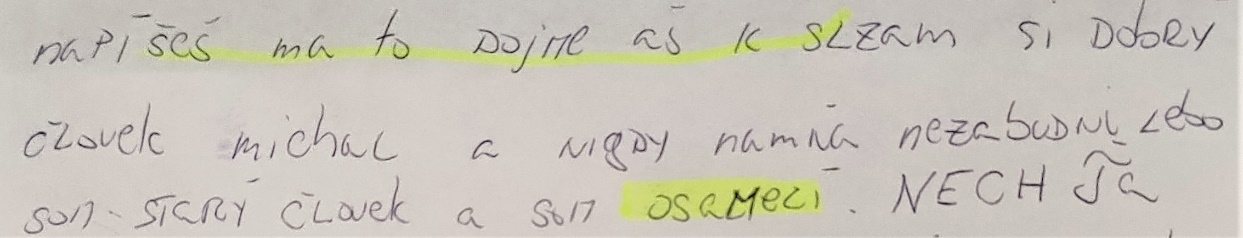 napíšeš ma to Dojme aš k sLzam si Dobry
človek michal a NIGDY namňa nezabudNi Lebo
son. STARÝ ČLovek a son osaMeLí. NECH Ťa